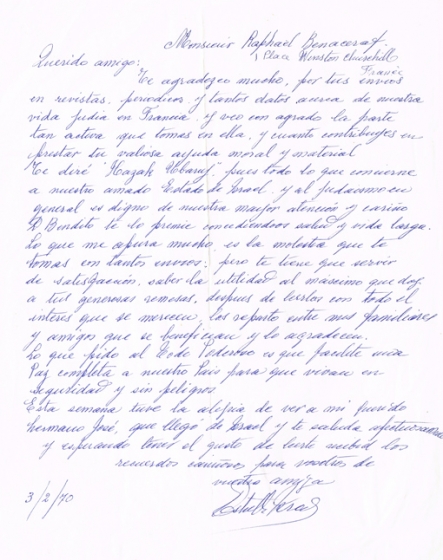 Monsieur Raphaël Benacerraf
1 Place Winston Churchill
France
Querido amigo:
Te agradezco mucho, por tus envios
en revistas, periodicos, y tantos datos acerca de nuestra
vida judia en Francia, y veo con agrado la parte
tan activa que tomas en ella, y cuanto contribuyes en
prestar tu valiosa ayuda moral y material
Te diré "Hazak Ubaruj", pues todo lo que concierne
a nuestro amado Estado de Israel, y al judaismo en
general es digno de nuestra mayor atención y cariño
D. Bendito te lo premie concediendoos salud y vida larga.
Lo que me apura mucho, es la molestia que te
tomas con tantos envios; pero te tiene que servir
de satisfacción, saber la utilidad al maximo que doy
a tus generosas remesas, despues de leerlos con todo el
interes que se merecen, los reparto entre mis familiares
y amigos que se benefician y lo agradecen.
Lo que pido al Todo Poderoso es que facilite una
Paz completa a nuestro Pais para que vivan en
seguridad y sin peligros
Esta semana tuve la alegria de ver a mi querido
hermano José, que llegó de Israel y te saluda
y esperando tener el gusto de leerte recibid los
recuerdos cariñosos para vosotros de
vuestra amiga
3/2/70